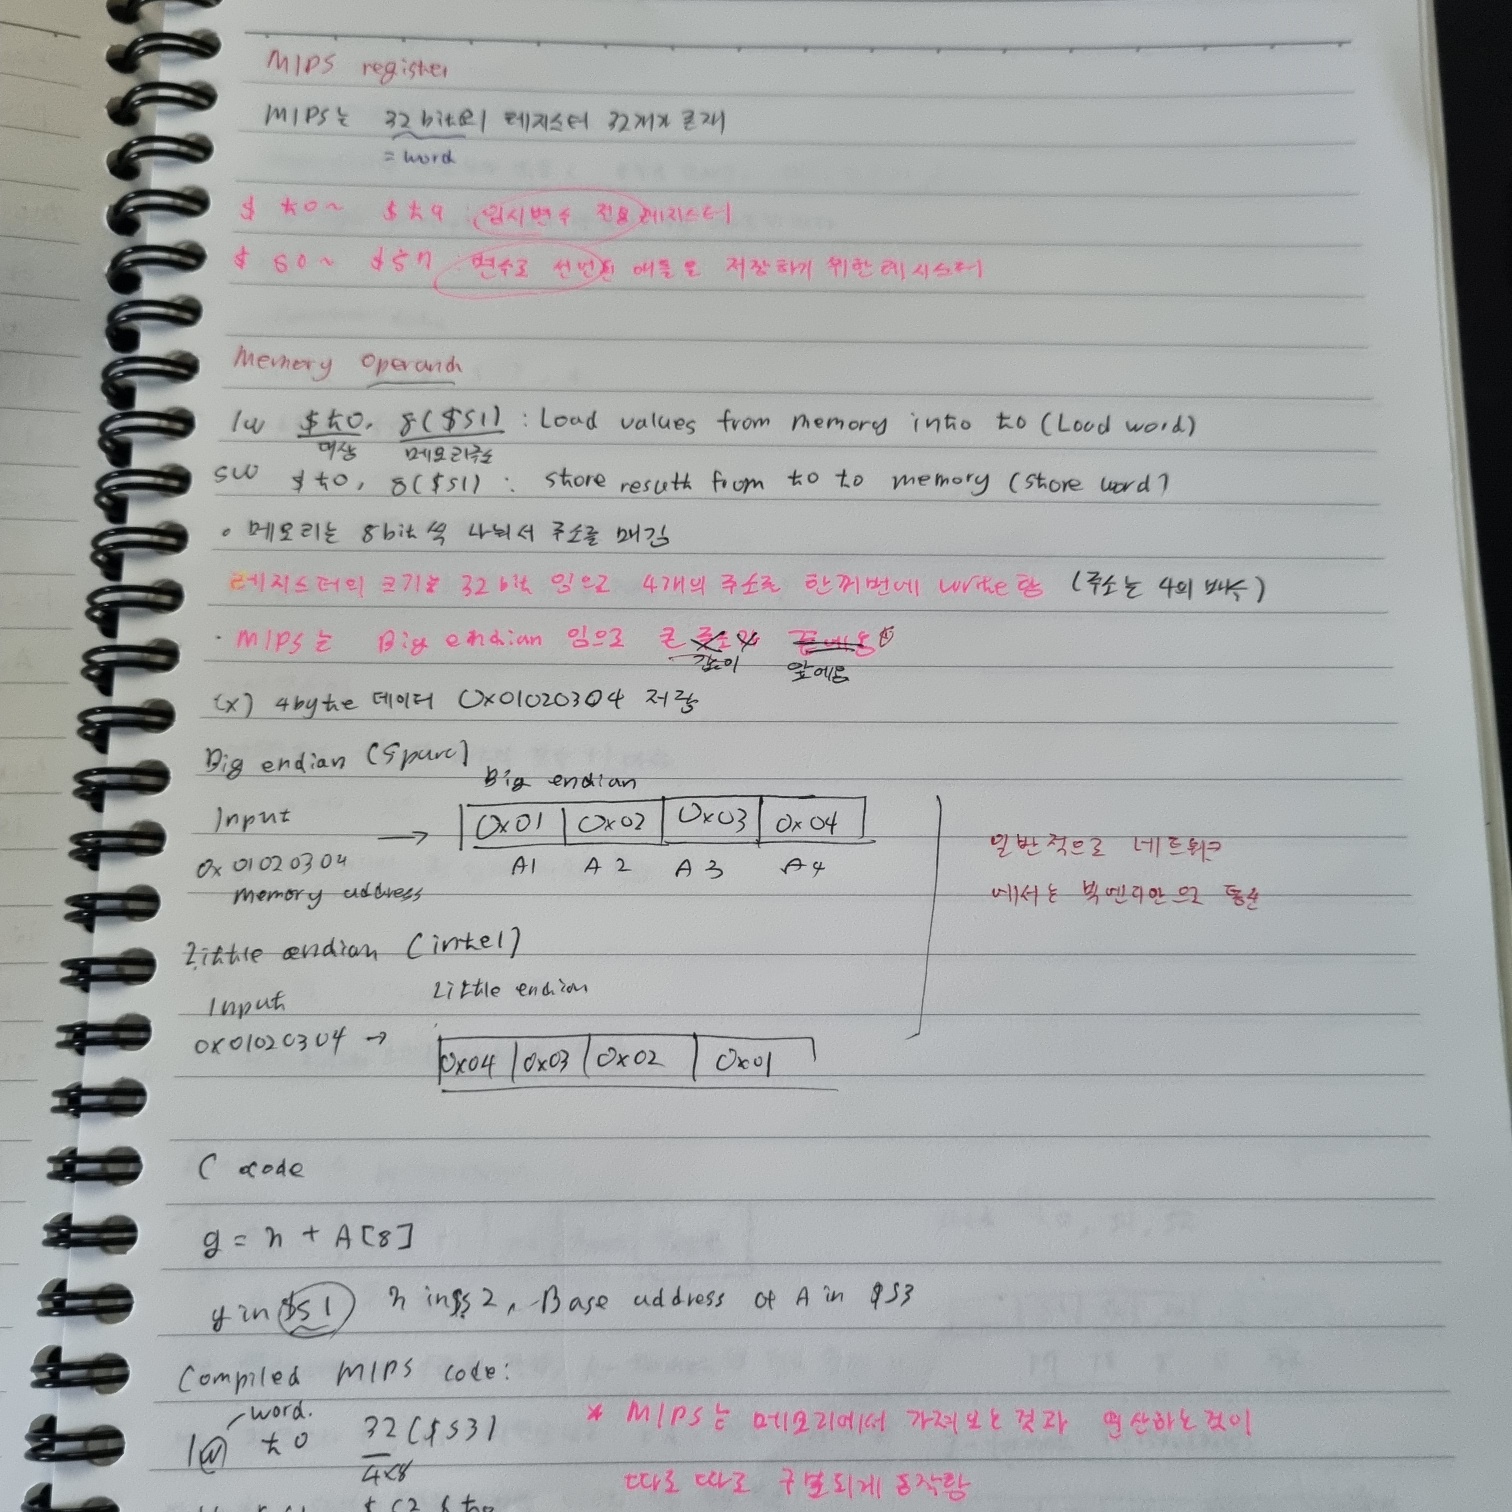 MIPS register
MIPS는 32bit의 레지스터 32개가 존재
= word
$t0~ $t9 : 임시변수 전용 레지스터
$s0~ $s7 : 변수로 선언된 애들을 저장하기 위한 레지스터
Memory operand
lw $t0, 8($s1) : Load values from memory into t0 (Load word)
대상 메모리주소
sw $t0, 8($s1) : store result from t0 to memory (store word)
• 메모리는 8bit씩 나눠서 주소를 매김
레지스터의 크기는 32bit 임으로 4개의 주소를 한꺼번에 write함 (주소는 4의 배수)
· MIPS는 Big endian 임으로 큰 주소가 끝에옴
값이 앞에옴
(x) 4byte 데이터 0x01020304 저장
Big endian (Sparc)
Big endian
Input → 0x01 0x02 0x03 0x04
0x01020304 A1 A2 A3 A4
memory address
일반적으로 네트워크
에서는 빅엔디안으로 통신
Little endian (intel)
Input Little endian
0x01020304 → 0x04 0x03 0x02 0x01
C code
g = h + A[8]
g in $s1 h in $s2, Base address of A in $s3
Compiled MIPS code:
word.
lw t0 32($s3)
4x8
* MIPS는 메모리에서 가져오는것과 연산하는것이
따로 따로 구분되게 동작함